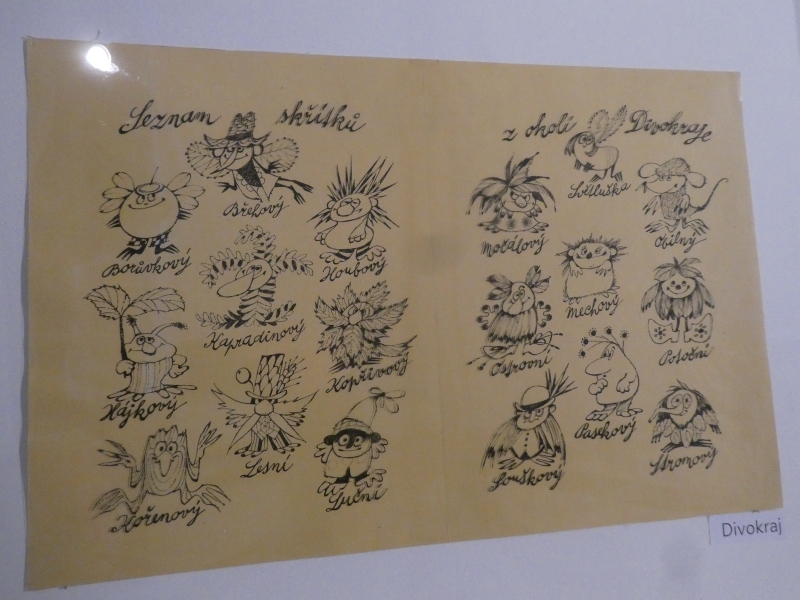 Seznam skřítků
z okolí Divokraje
Břehový
Borůvkový
Houbový
Kapradinový
Hájkový
Kopřivový
Lesní
Kořenový
Luční
Světluška
Močálový
Obilný
Mechový
Ostrovní
Potoční
Pasekový
Louškový
Stromový
Divokraj